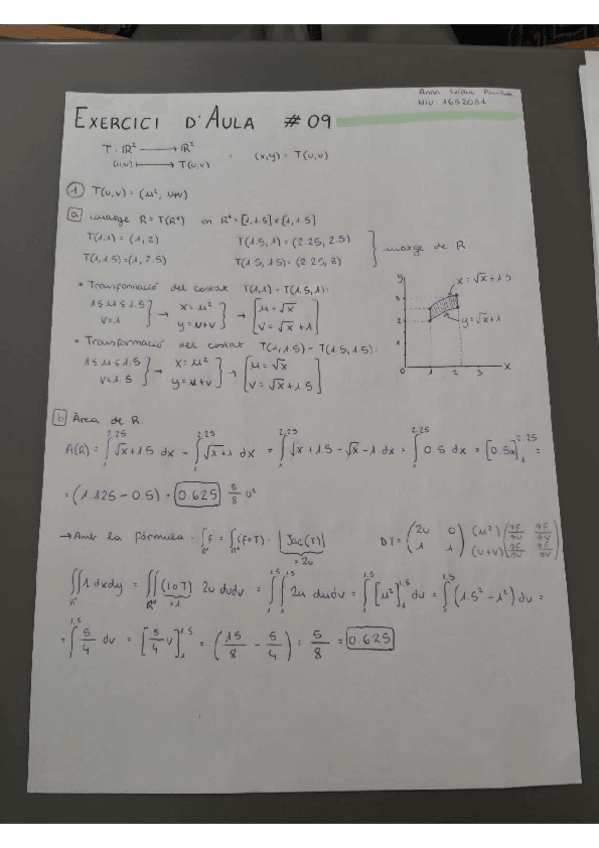 Anna
NIU 1632031
EXERCICI D'AULA #09
T: ℝ² → ℝ²
(u,v) ↦ T(u,v) . (x,y) = T(u,v)
① T(u,v) = (u², u+v)
a imatge R = T(R*) on R* = [1,1.5] x [1,1.5]
T(1,1) = (1,2) T(1.5,1) = (2.25, 2.5)
T(1,1.5) = (1, 2.5) T(1.5,1.5) = (2.25, 3) } imatge de R
• Transformació del costat T(1,1) - T(1.5,1):
1 ≤ u ≤ 1.5
v = 1 } → x = u²
y = u+v } → [ u = √x
v = √x + 1 ]
• Transformació del costat T(1,1.5) - T(1.5,1.5):
1 ≤ u ≤ 1.5
v = 1.5 } → x = u²
y = u+v } → [ u = √x
v = √x + 1.5 ]
y
x = √x + 1.5
y = √x + 1
3
2
1
0
1 2 3 x
b Àrea de R.
A(R) = ∫₁^2.25 √x + 1.5 dx - ∫₁^2.25 √x + 1 dx = ∫₁^2.25 √x + 1.5 - √x - 1 dx = ∫₁^2.25 0.5 dx = [0.5x]₁^2.25 =
= (1.125 - 0.5) = 0.625 5/8 u²
→ Amb la fórmula: ∫f = ∫(f∘T) · |Jac(T)| = 2u DT = (2u 0
1 1) (u²)
(u+v)
∬1 dxdy = ∬(1∘T) 2u dudv = ∫₁^1.5 ∫₁^1.5 2u dudv = ∫₁^1.5 [u²]₁^1.5 dv = ∫₁^1.5 (1.5² - 1²) dv =
= ∫₁^1.5 5/4 dv = [5/4 v]₁^1.5 = (15/8 - 5/4) = 5/8 = 0.625